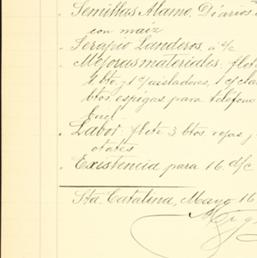 Semillas Alamo, Diarios
con maiz
Serapio Landeros, a c/c
Mejoras materiales, flete
1 bto. y 1 c/ aisladores, 1 c/ cla
btos espigas para teléfono
Labor flete 3 btos rejas y
otates
Existencia para 16 d/c
Sta. Catalina, Mayo 16